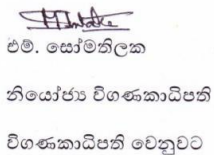 එම්. සෝමතිලක
නියෝජ්‍ය විගණකාධිපති
විගණකාධිපති වෙනුවට